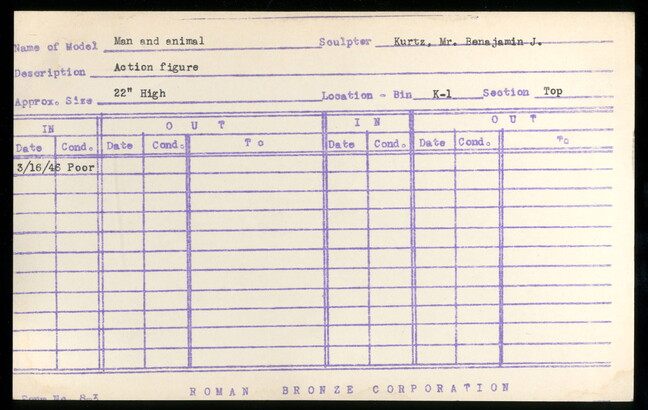 Name of Model Man and animal Sculptor Kurtz, Mr. Benajamin J.
Description Action figure
Approx. Size 22" High Location - Bin K-1 Section Top
IN OUT IN OUT
Date Cond. Date Cond. To Date Cond. Date Cond. To
3/16/46 Poor
Form No. S-I
ROMAN BRONZE CORPORATION